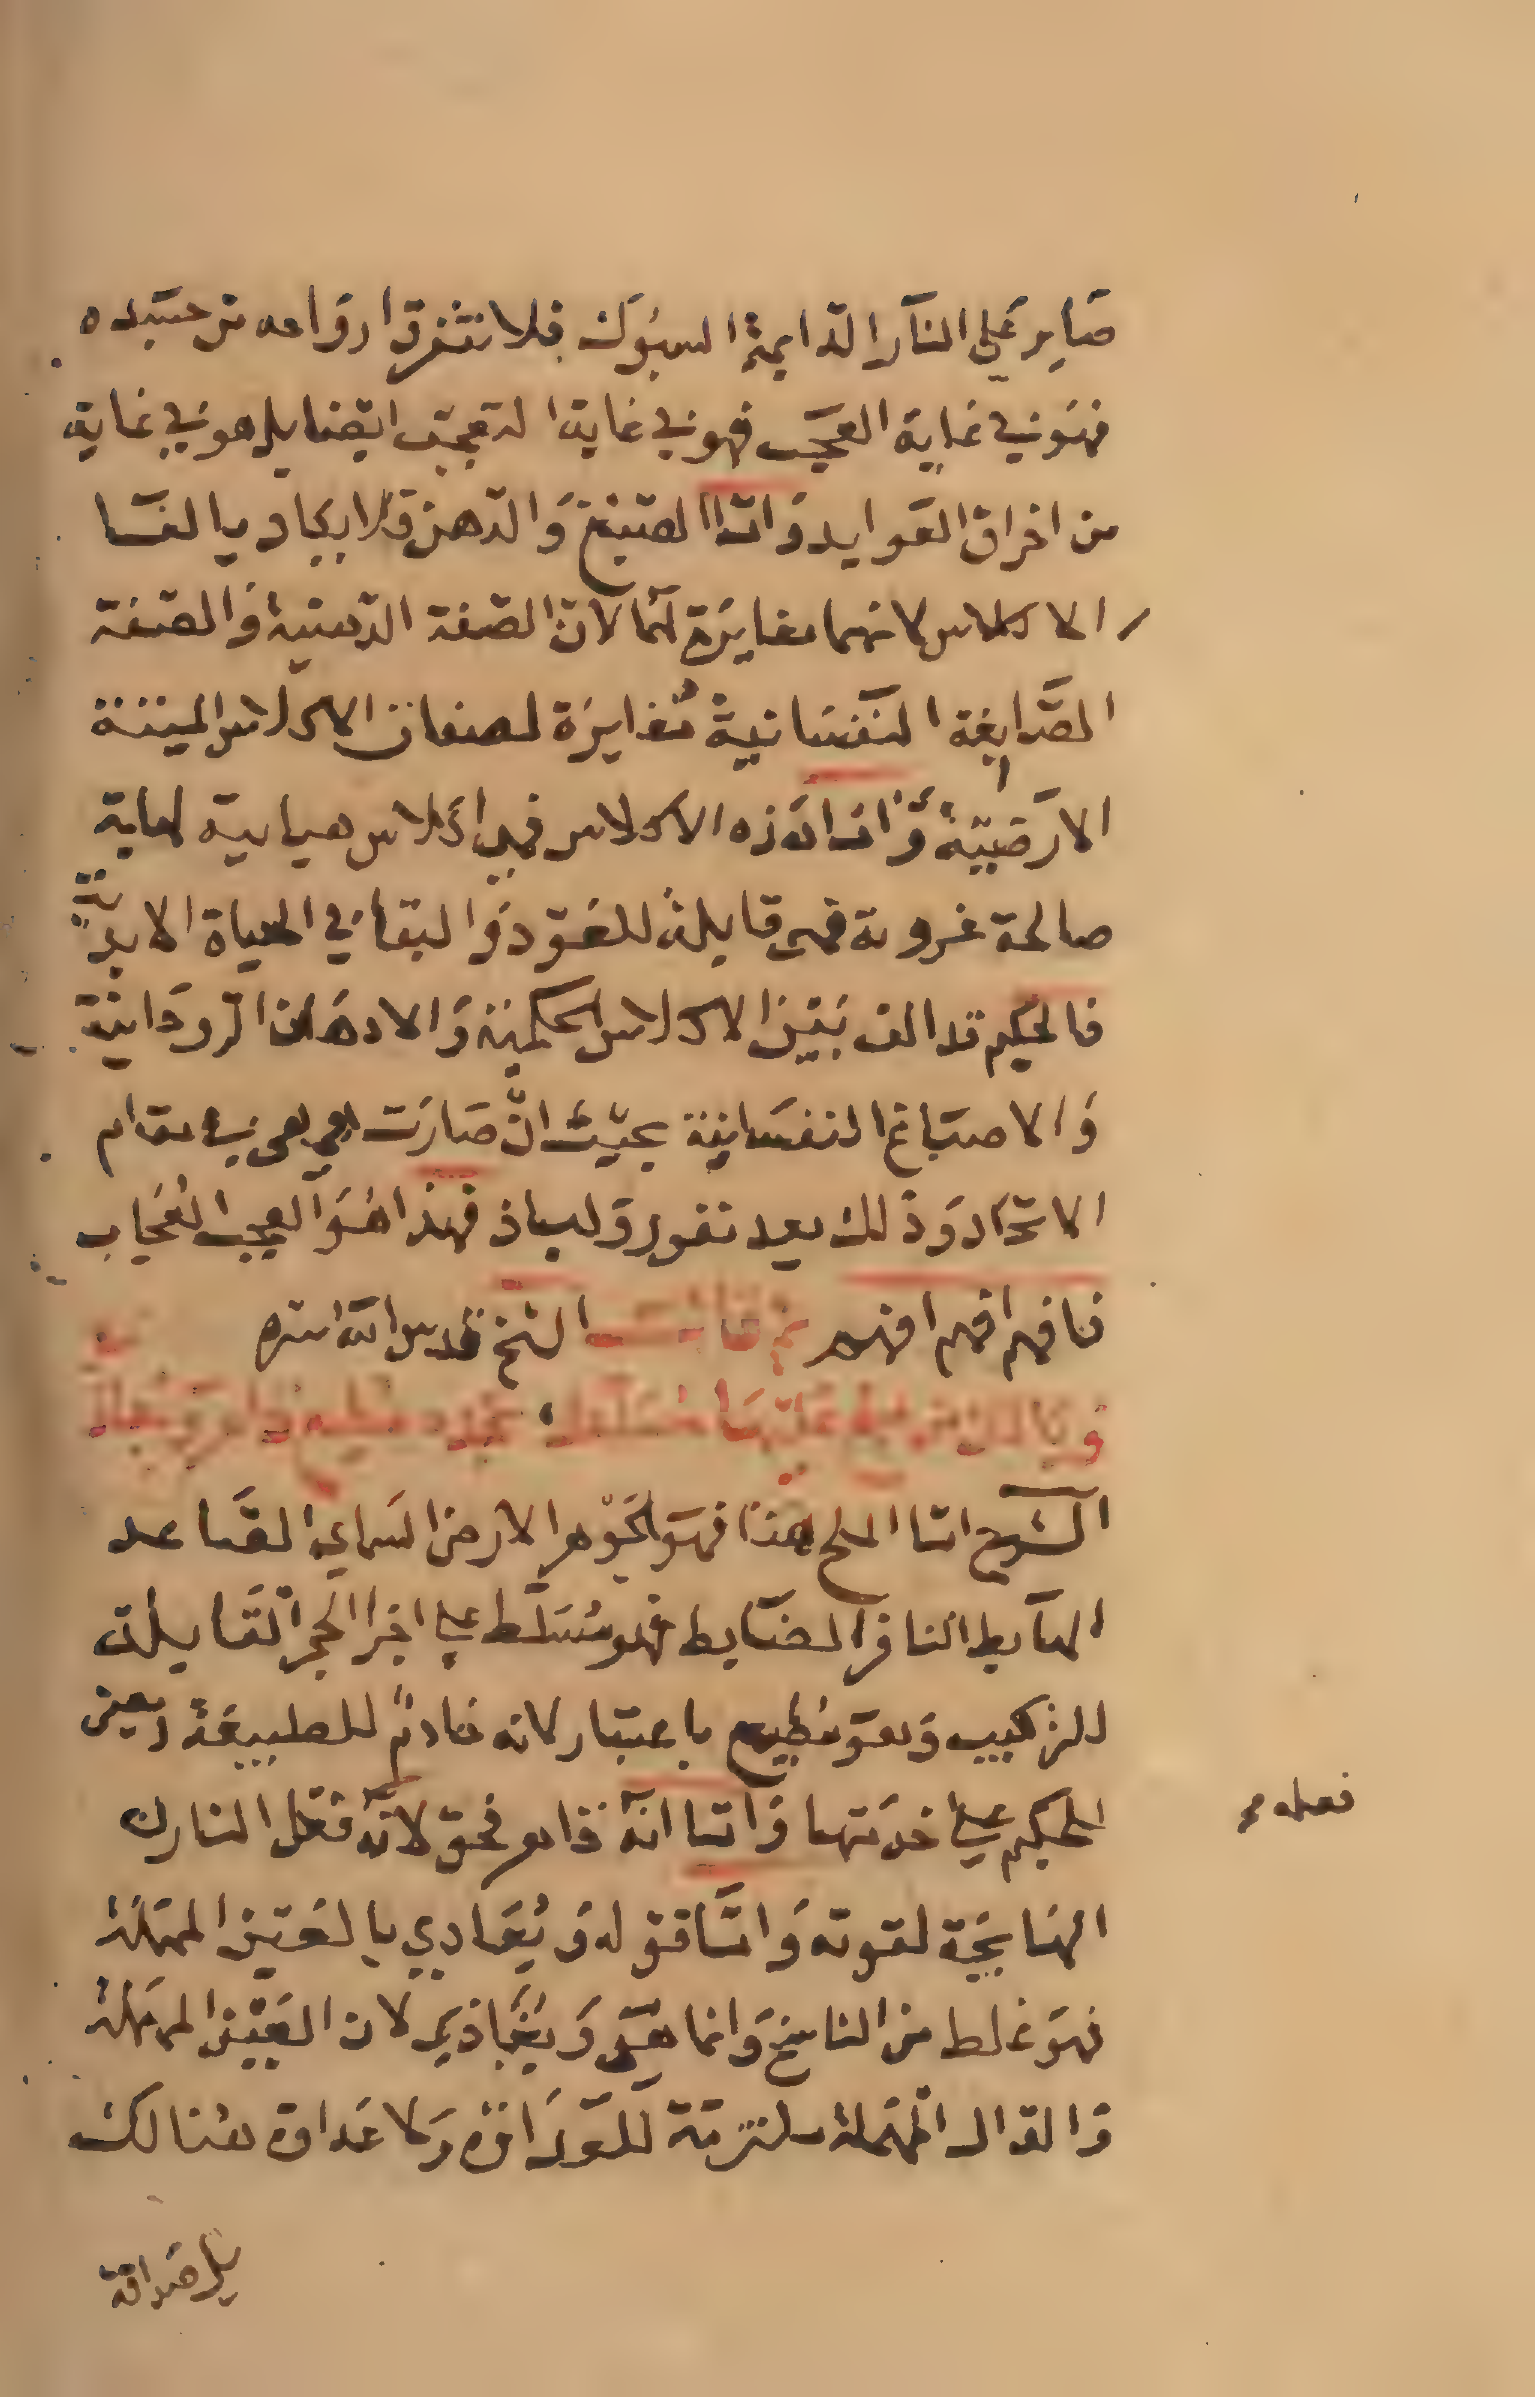 صَابر عَلى النار الدايمة السبوك فلا تتفرق ارواحه من جسَده
فهَو في غاية العجَب فهو في غاية التعجب ايضا بل هو في غاية
من اخراق العَوايد وَاما الصبغ وَالدهن فلا يكاد يالفَا
الاكلاس لانهما مغايرَة لهَا لان الصّفة الدّهنية وَالصّفة
الصَّابغة النفسَانية مُغايرَة لصفات الاكلاس الميتة
الارضيّة وَاما هَذه الاكلاس فهي اكلاس هيايية
صالحة غروية فهى قابلة للخلود وَالبقا في الحياة الابدية
فالحكيم قد الف بَيْن الاكلاس الحكمية وَالادهَان الروحَانية
وَالاصبَاغ النفسَانية بحيْث انّ صَارَت هي هي في مقام
الاتحَاد وَذلك بعد نفور فهَذا هُوَ العجب العُجَاب
فافهم افهم افهم ثم قال الشيخ قدس الله سره
الشرح امَا الملح هَذا فهوَ الجَوْهر الارضي السَماوي الصَاعد
الهَابط النافر الضَابط فهو مُسَلّط على اجزا الحجر القَابلة
للتركيب وَهوَ مُطيع باعتبار لانه خادمٌ للطبيعَة ويعين
الحكيم على خدمَتها وَامَا انه قاهر فحق لانّه فعَل النار
فعله
الهَايجَة لقوته وَامَّا قوله وَيُعَادي بالعَين المهملة
فهوَ غلط من الناسخ وَانما هوَ وَيُغَاذي لان العَيْن المهملة
وَالدال المهمَلة ملتزمة للعَدَاوَة وَلا عَداوة هنالك
بل صَداقة